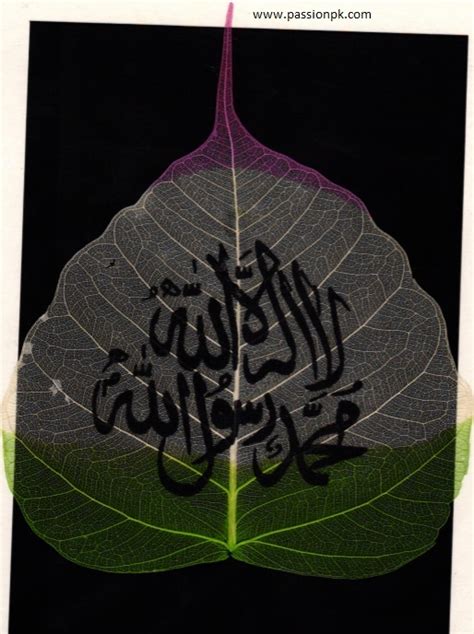 www.passionpk.com
لا اله الا الله
محمد رسول الله